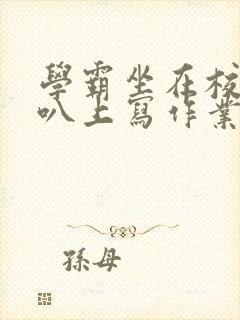 學霸坐在校
叭上寫作業
孫母